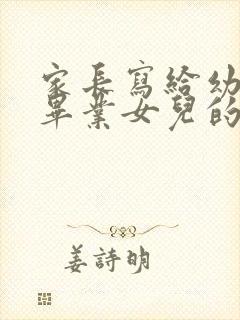 家長寫給幼
畢業女兒的
姜詩明